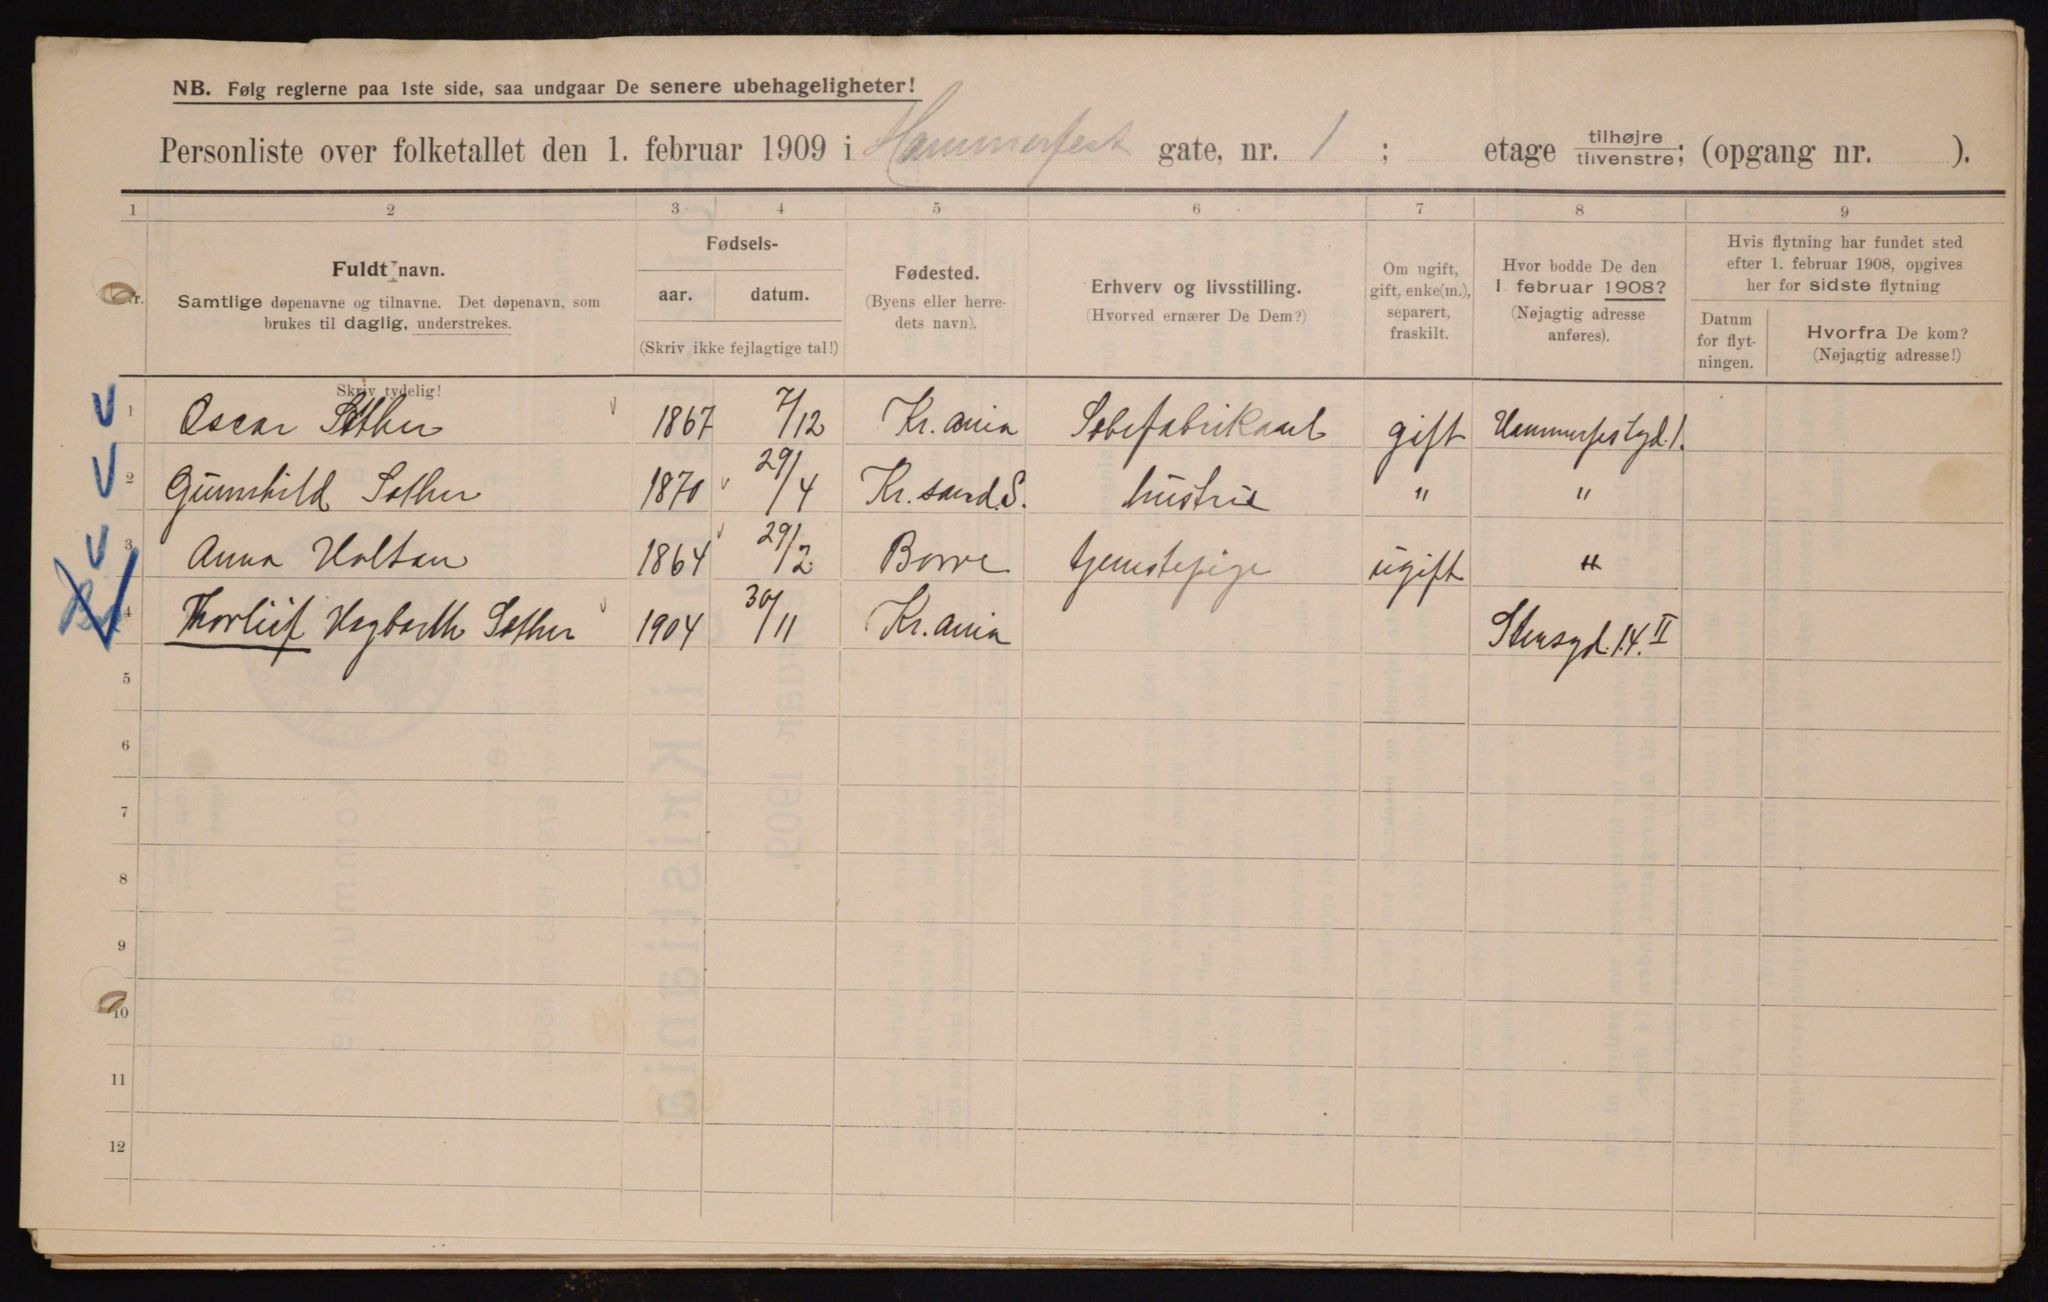 NB. Følg reglerne paa 1ste side, saa undgaar De senere ubehageligheter!
Personliste over folketallet den 1. februar 1909 i Hammerfest gate, nr. 1 ; etage tilhøjre tilvenstre; (opgang nr. ).
1 2 3 4 5 6 7 8 9
Nr.
Fuldt navn.
Samtlige døpenavne og tilnavne. Det døpenavn, som
brukes til daglig, understrekes.
Skriv tydelig!
Fødsels-
aar. datum.
(Skriv ikke fejlagtige tal!)
Fødested.
(Byens eller herre-
dets navn).
Erhverv og livsstilling.
(Hvorved ernærer De Dem?)
Om ugift,
gift, enke(m.),
separert,
fraskilt.
Hvor bodde De den
1 februar 1908?
(Nøjagtig adresse
anføres).
Hvis flytning har fundet sted
efter 1. februar 1908, opgives
her for sidste flytning
Datum
for flyt-
ningen.
Hvorfra De kom?
(Nøjagtig adresse!)
1 Oscar Sother 1867 7/12 Kr.ania Sebefabrikant gift Hammerfestgd. 1.
2 Gunnhild Sother 1870 29/4 Kr.sand.S. hustru " "
3 Anna Holtan 1864 29/2 Borre tjenestepige ugift "
4 Thorleif Hagbarth Sother 1904 30/11 Kr.ania Stensgd. 14. II
5
6
7
8
9
10
11
12